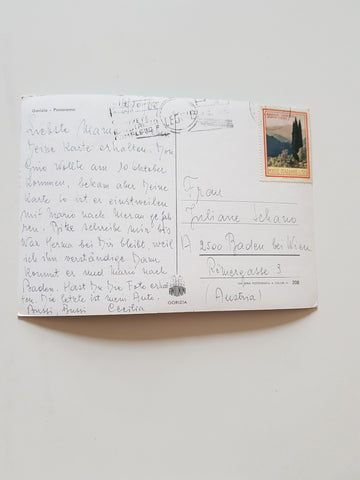 Gorizia - Panorama
Liebste Mama
Deine Karte erhalten. Don
Gino wollte am 10 Oktober
kommen, bekam aber Deine
Karte so ist er einstweilen
mit Mario nach Meran gefah
ren. Bitte schreibe mir bis
wan Herma bei Dir bleibt, weil
ich ihn verständige. Dann
kommt er und Mario nach
Baden. Hast Du Die Foto erhal
ten. Die letzte ist mein Auto.
Bussi, Bussi Cecilia
POSTE ITALIANE
Frau
Juliane Schano
A 2500 Baden bei Wien
Römergasse 3
(Austria)
208
GORIZIA